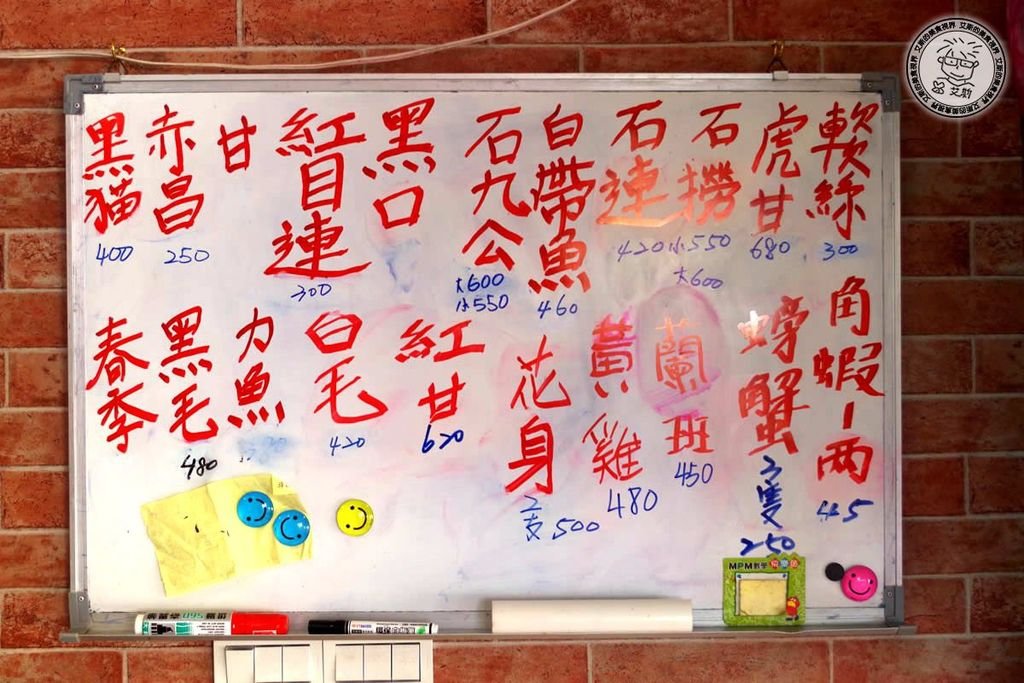 軟絲
300
虎甘
680
石撈
小550
大600
石連
420
白帶魚
460
石九公
大600
小550
黑口
紅目連
300
甘
赤昌
250
黑貓
400
角蝦1两
45
螃蟹
3隻
250
蘭班
450
黃雞
480
花身
2支500
紅甘
620
白毛
420
力魚
黑毛
480
春季
MPM數學
艾斯的美食視界
艾斯